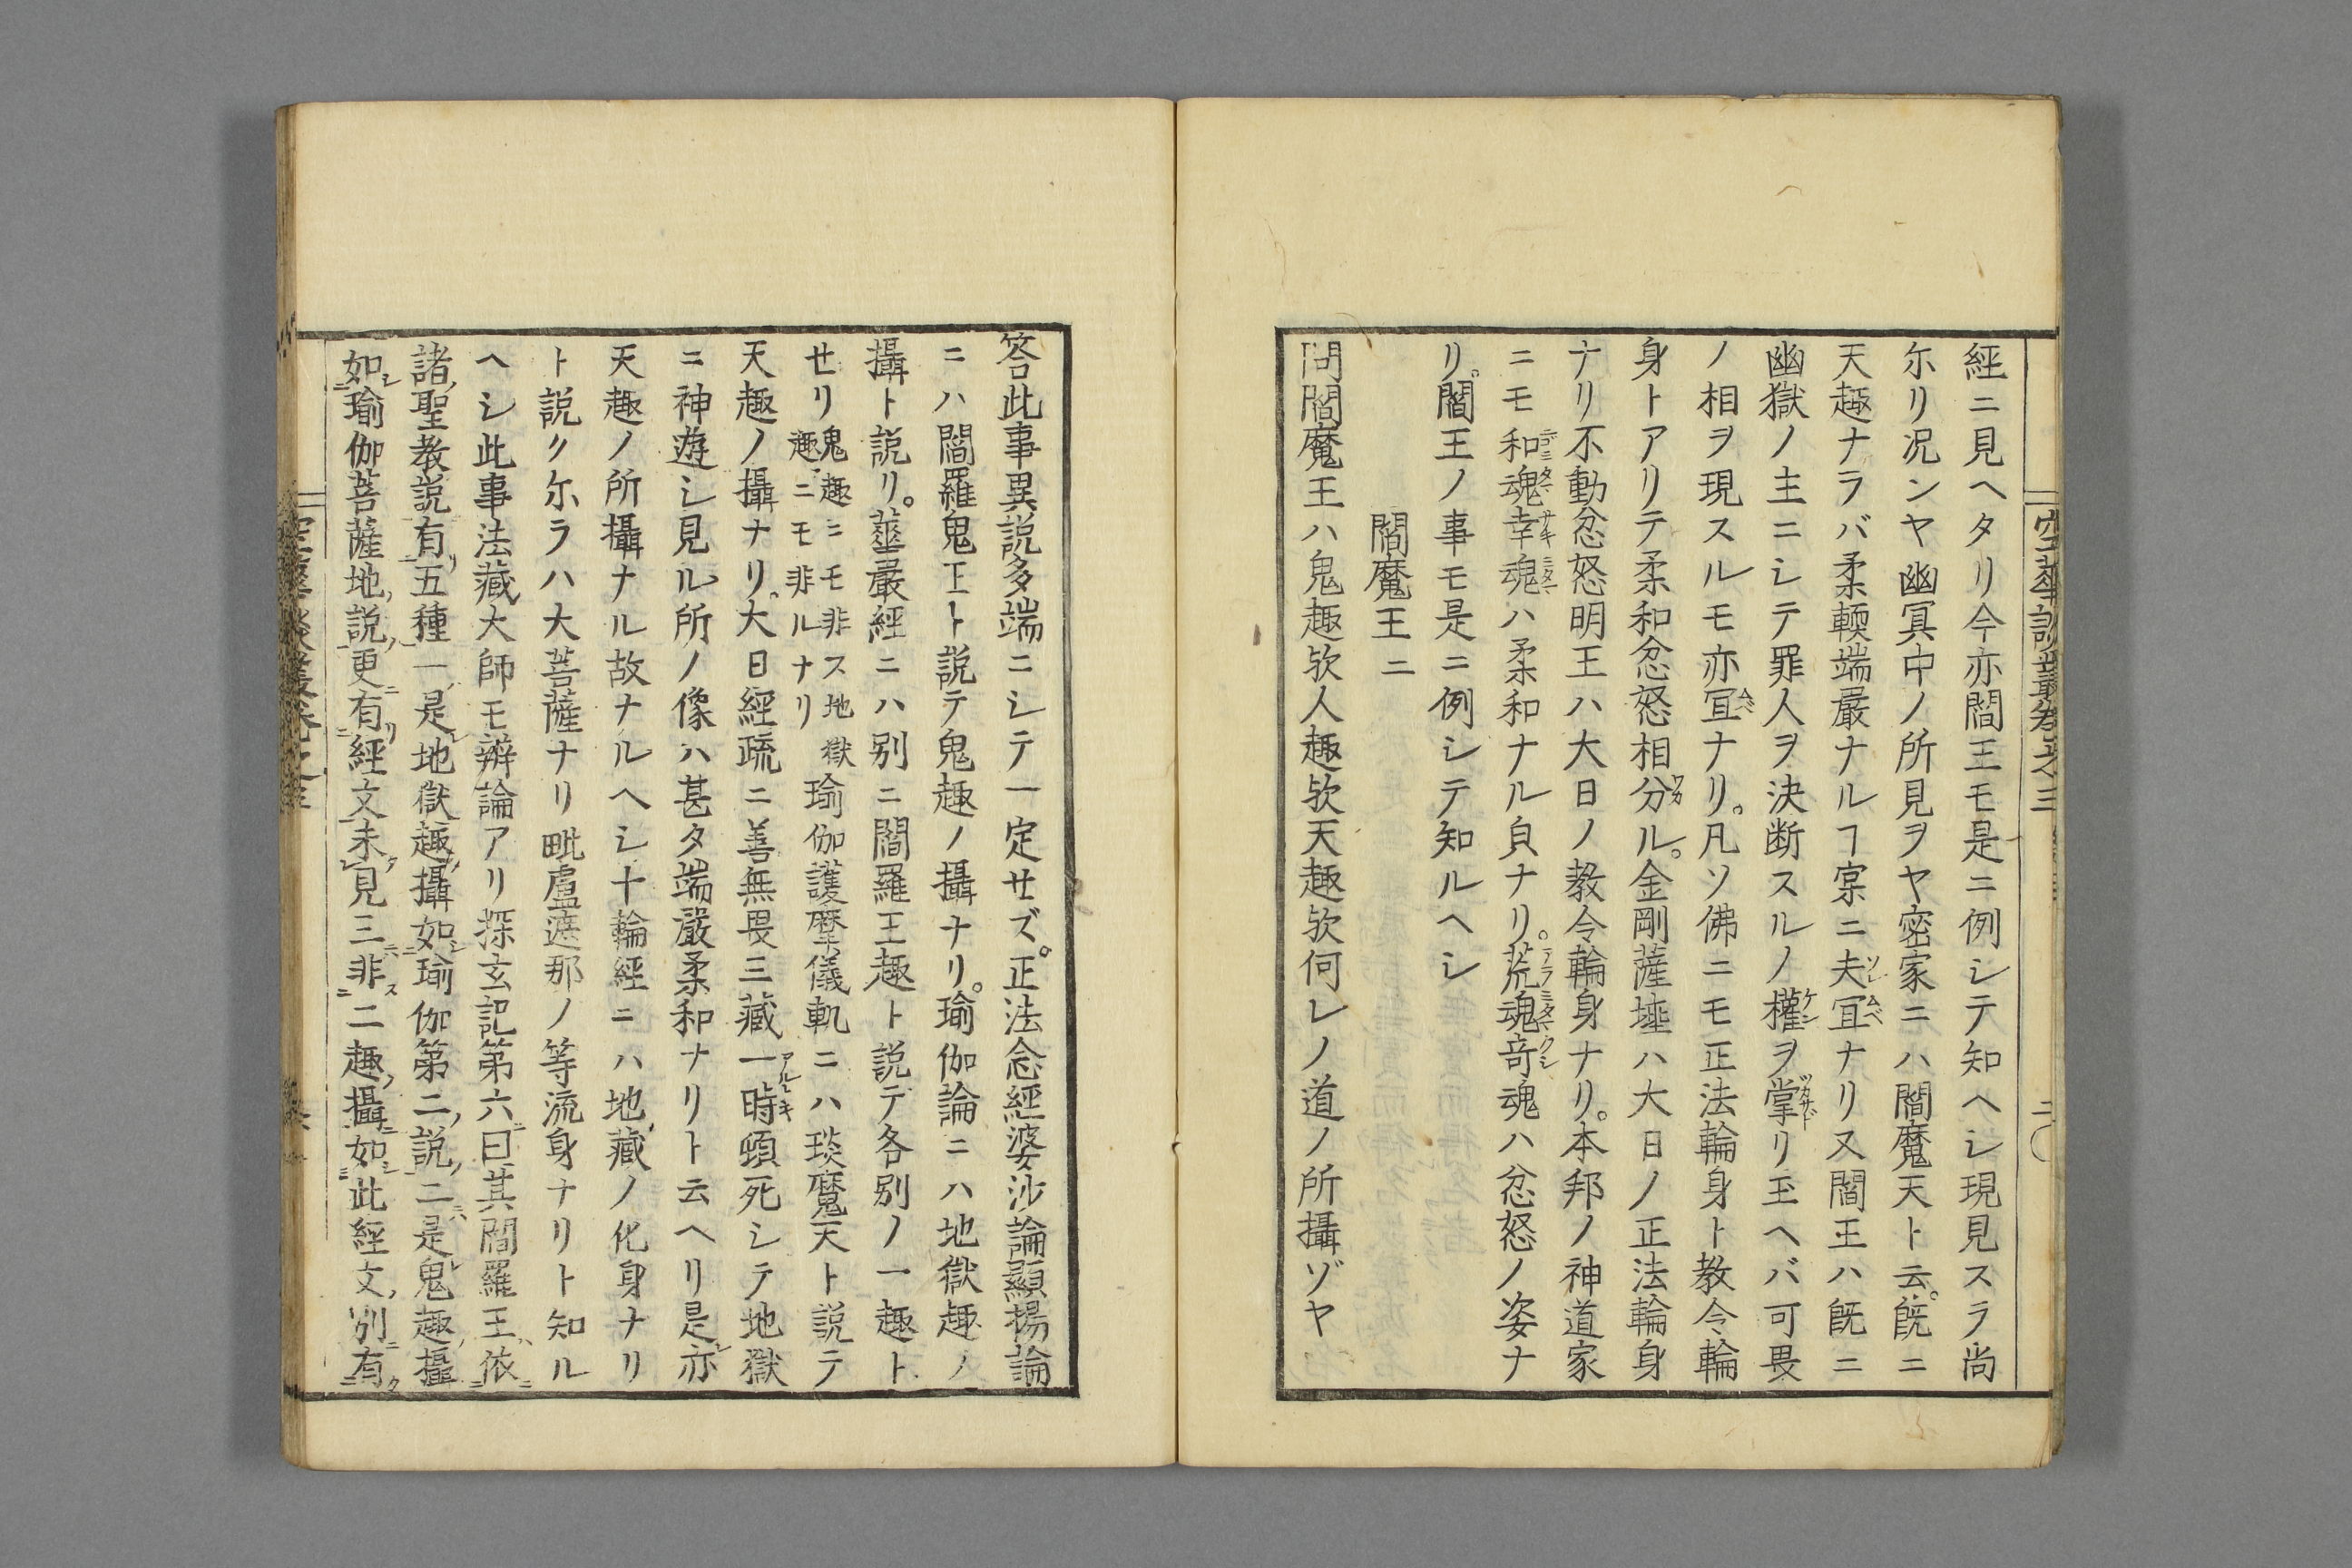 經ニ見ヘタリ今亦閻王モ是ニ例シテ知ヘシ現見スラ尚
尓リ况ンヤ幽冥中ノ所見ヲヤ密家ニハ閻魔天ト云。既ニ
天趣ナラバ柔輭端嚴ナルヿ寔ニ夫宜ナリ又閻王ハ既ニ
幽獄ノ主ニシテ罪人ヲ決断スルノ權ヲ掌リ玉ヘバ可畏
ノ相ヲ現スルモ亦宜ナリ。凡ソ佛ニモ正法輪身ト教令輪
身トアリテ柔和忿怒相分ル。金剛薩埵ハ大日ノ正法輪身
ナリ不動忿怒明王ハ大日ノ教令輪身ナリ。本邦ノ神道家
ニモ和魂幸魂ハ柔和ナル皃ナリ。荒魂竒魂ハ忿怒ノ姿ナ
リ。閻王ノ事モ是ニ例シテ知ルヘシ
閻魔王二
問閻魔王ハ鬼趣欤人趣欤天趣欤何レノ道ノ所攝ゾヤ
答此事異説多端ニシテ一定セズ。正法念經婆沙論顯揚論
ニハ閻羅鬼王ト説テ鬼趣ノ攝ナリ。瑜伽論ニハ地獄趣ノ
攝ト説リ。華嚴經ニハ別ニ閻羅王趣ト説テ各別ノ一趣ト
セリ鬼趣ニモ非ス地獄趣ニモ非ルナリ瑜伽護摩儀軌ニハ琰魔天ト説テ
天趣ノ攝ナリ。大日經疏ニ善無畏三藏一時頓死シテ地獄
ニ神遊シ見ル所ノ像ハ甚タ端嚴柔和ナリト云ヘリ是亦
天趣ノ所攝ナル故ナルヘシ十輪經ニハ地藏ノ化身ナリ
ト説ク尓ラハ大菩薩ナリ毗盧遮那ノ等流身ナリト知ル
ヘシ此事法藏大師モ辨論アリ探玄記第六曰其閻羅王依
諸聖教説有五種一是地獄趣攝如瑜伽第二説二是鬼趣攝
如瑜伽菩薩地説更有經文未見三非二趣攝如此經文別有